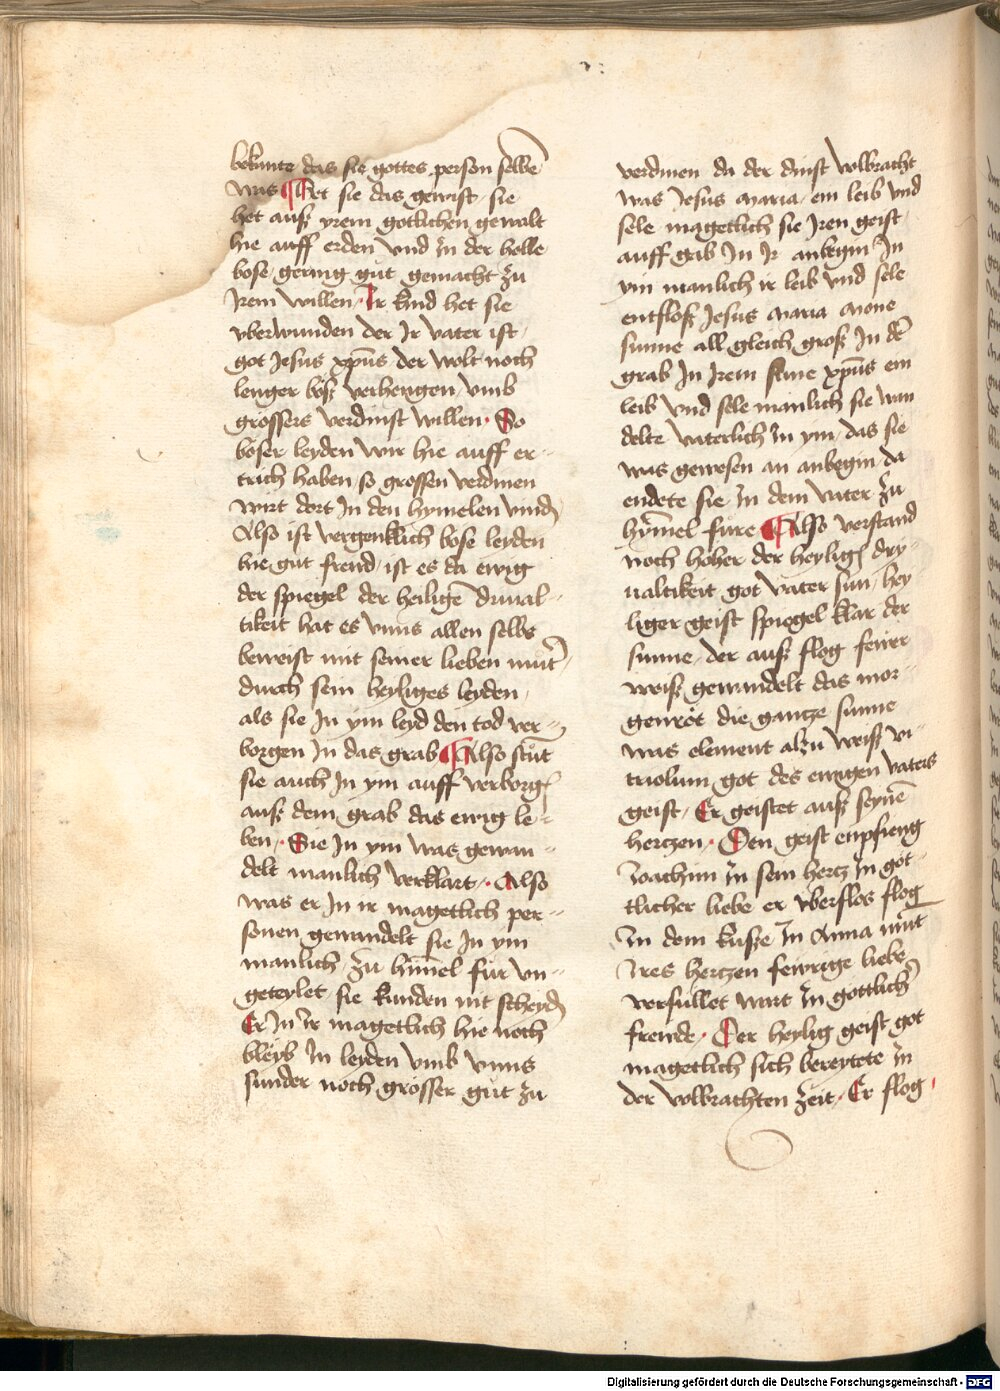 bekante das sie gottes person selbe
was ¶ Het sie das gewist sie
het auß yrem gotlichen gewalt
hie auff erden vnd in der helle
bose gering gut gemacht zu
Irem willen · Ir kind het sie
vberwunden der Ir vater ist
got Jesus xpūs der wolt noch
lenger böß verhengen vmb
grossers verdinst willen · So
böser leyden wir hie auff er-
trich haben so grossen verdinen
wirt dort In den hymelen
Also ist vergenklich bose leyden
hie gut freud ist es da ewig
der spiegel der heiligē driual-
tikeit hat es vnns allen selbs
beweist mit seiner lieben mutˀ
durch sein heyliges leyden
als sie In ym leyd den tod ver-
borgen In das grab ¶ Also stūt
sie auch In ym auff verborgē
auß dem grab das ewig le-
ben · Sie In ym was gewan-
delt manlich verklart · Also
was er In ir magetlich per-
sonen gewandelt sie In ym
manlich zu hīmel fur vn-
geteylet sie kunden nit scheydē
Er In ir magetlich hie noch
bleyb In leyden vmb vnns
sunder noch grosser gut zu
verdinen da der dinst volbracht
was Jesus maria ein leib vnd
sele magetlich sie Iren geist
auff gab In Ir anbegin In
ym manlich ir leib vnd sele
entfloß Jesus maria mone
sunne all gleich groß In dē
grab In Irem sune xpūs ein
leib vnd sele manlich sie wan
delte vaterlich In ym das sie
was gewesen an anbegin da
endete sie In dem vater zu
hȳmel fure ¶ Also verstand
noch höher der heyligē dry-
ualtikeit got vater sun hey
liger geist spiegel klar der
sunne der auß flog fewer
weiß gewandelt das mor-
genröt die gantze sunne
was element alzu weiß vi
triolum got des ewigen vaters
geist · Er geistet auß seynē
hertzen · Den geist enpfieng
Joachim In sein hertz In göt-
tlicher liebe er vberflos flog
In dem kusße In Anna mūt
Ires hertzen fewrige liebe
verfullet wart In gottlichˀ
freude · Der heylig geist got
magetlich sich bereytete In
der volbrachten zeit · Er flog
Digitalisierung gefördert durch die Deutsche Forschungsgemeinschaft - DFG